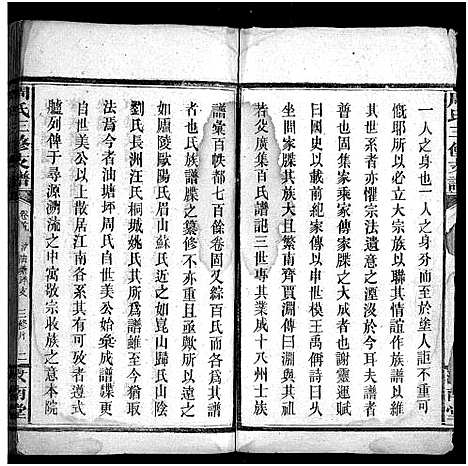 一人之身也一人之身分而至於塗人詎不重可
慨耶所以必立大宗族以聯其情誼作族譜以敘
其世系者亦懼宗法遺意之湮沒於今耳夫史
普也固三家牒家傳家之大成者也謝靈運賦
曰國史以載前紀家傳以申世模王禹偁曰史
一開家牒其族大且繁南齊賈淵世傳譜學其祖
若父廣集百氏譜記三世專其業成十八州士族
譜彙百帙都七百餘卷固又綜百氏而各有其譜
也氏族譜牒之纂修不亦重且亟歟所以遠之
如廬陵歐陽氏眉山蘇氏近之如崑山歸氏山陰
劉氏長洲汪氏桐城姚氏其所為譜雖至今猶取
法焉今者油塘坪周氏自世美公始彙成譜牒更
自世美公以上散居江南各系其可攷者遵式
臚列傳于尋源溯流之中寓敬宗收族之意本院
周氏三修支譜
卷首
三修
二
汝南堂
周氏三修支譜
汝南堂